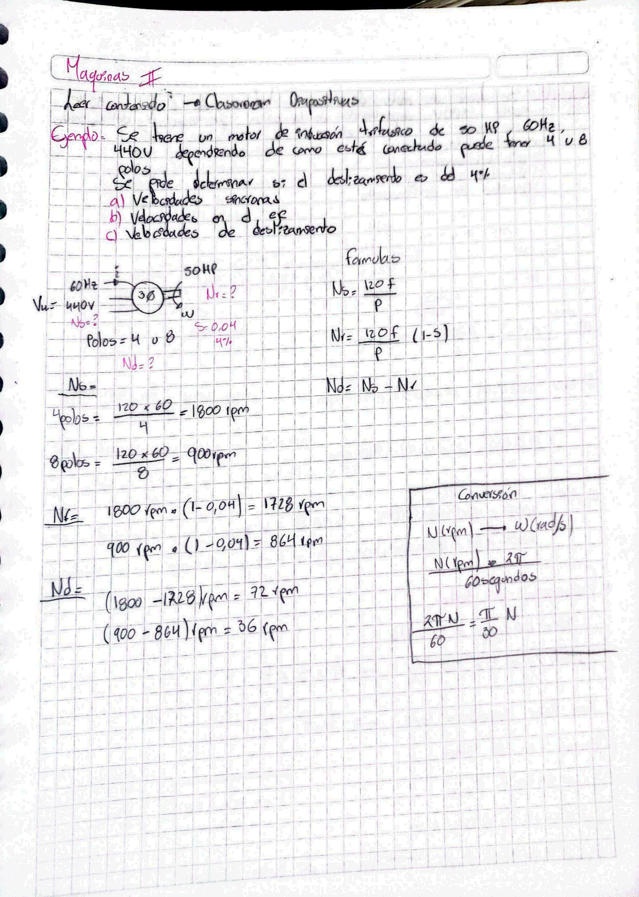 Maquinas II
Leer contenido → Classroom Diapositivas
Ejemplo = Se tiene un motor de inducción trifasico de 50 HP, 60Hz,
440V dependiendo de como está conectado puede tener 4 u 8
polos
Se pide determinar si el deslizamiento es del 4%
a) Velocidades sincronas
b) Velocidades en el eje
c) Velocidades de deslizamiento
formulas
60Hz
50 HP
3Ø
Nr=?
VLL= 440V
w
Ns=?
Polos = 4 u 8
S=0.04
4%
Nd=?
Ns = 120 f / P
Nr = 120 f / P (1-S)
Nd = Ns - Nr
Ns=
4polos = 120 x 60 / 4 = 1800 rpm
8polos = 120 x 60 / 8 = 900rpm
Nr= 1800 rpm • (1-0,04) = 1728 rpm
900 rpm • (1-0,04) = 864 rpm
Nd= (1800 - 1728)rpm = 72 rpm
(900 - 864) rpm = 36 rpm
Conversión
N(rpm) → W(rad/s)
N(rpm) • 2π / 60segundos
2πN / 60 = π / 30 N